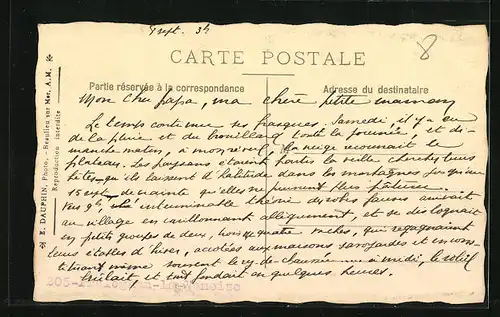 7 sept. 34
8
CARTE POSTALE
Partie réservée à la correspondance
Adresse du destinataire
Mon cher papa, ma chère petite maman,
Le temps continue ses frasques. Samedi, il y a eu
de la pluie et du brouillard toute la journée, et di-
manche matin, à mon réveil, la neige recouvrait le
plateau. Les paysans étaient partis la veille chercher leurs
bêtes qu'ils laissent d'habitude dans les montagnes jusqu'au
15 sept. de crainte qu'elles ne puissent plus pâturer.
Vers 9h interminable théorie des robes fauves arrivait
au village en carillonnant allègrement, et se disloquait
en petits groupes de deux, trois ou quatre vaches, qui regagnaient
leurs étables d'hiver, accolées aux maisons savoyardes et en cons-
tituant même souvent le rez-de-chaussée à midi, le soleil
brillait, et tout fondait en quelques heures.
E. DAUPHIN, Photo. - Beaulieu sur Mer, A.M.
Reproduction interdite
205